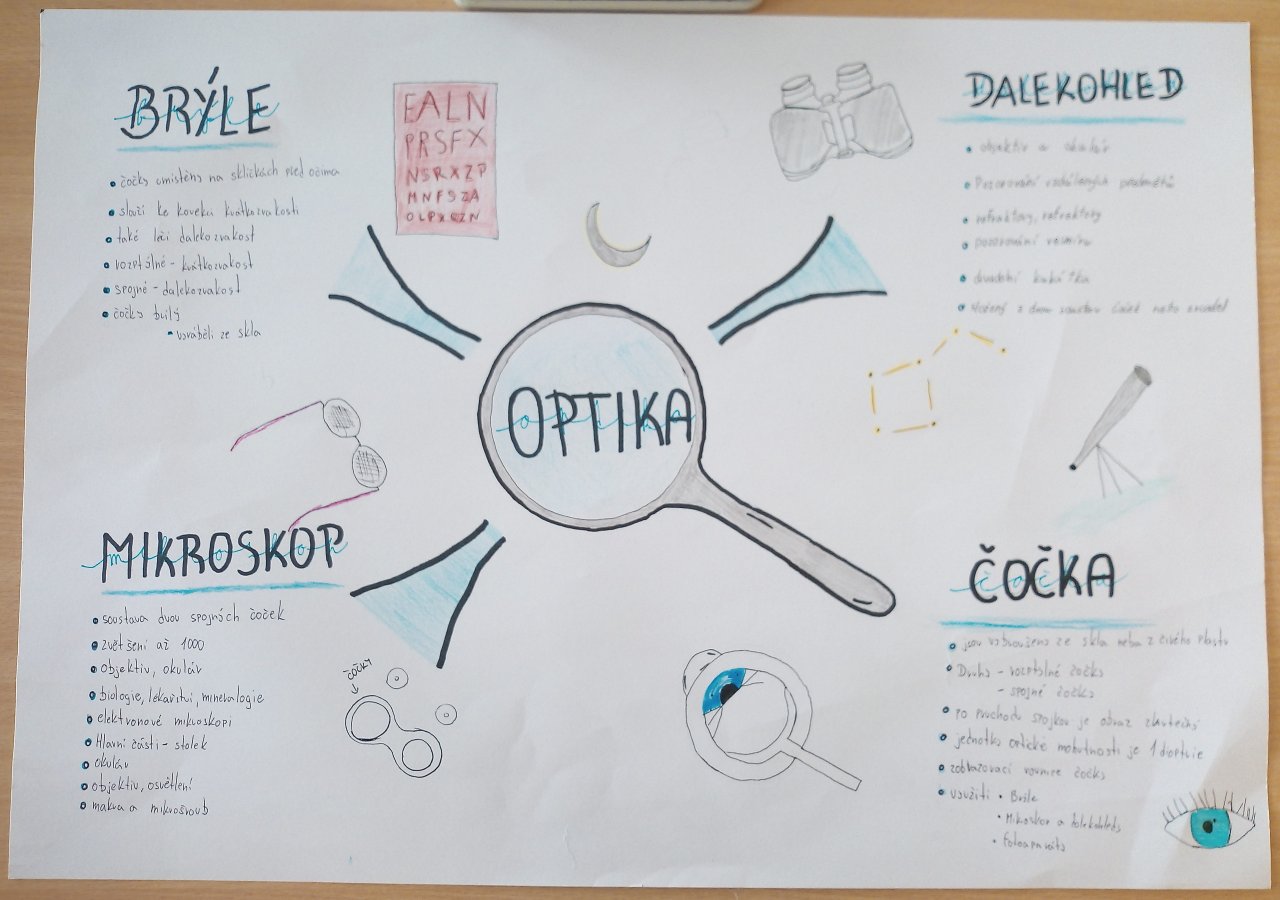 BRÝLE
čočky umístěny na skličkách před očima
slouží ke korekci krátkozrakosti
také léčí dalekozrakost
rozptýlné - krátkozrakost
spojné - dalekozrakost
čočky byly
vyráběli ze skla
EALN
PRSFX
NSRXZP
MNFSZA
OLPXCZN
DALEKOHLED
objektiv a okulár
Pozorování vzdálených předmětů
refraktory, reflektory
pozorování vesmíru
divadelní kukátka
složený z dvou soustav čoček nebo zrcadel
OPTIKA
optika
MIKROSKOP
mikroskop
soustava dvou spojných čoček
zvětšení až 1000
objektiv, okulár
biologie, lékařství, mineralogie
elektronové mikroskopi
Hlavní části - stolek
okulár
objektiv, osvětlení
makro a mikrošroub
čočky
ČOČKA
čočka
jsou vybroušeno ze skla nebo z čirého plastu
Druhy - rozptylné čočky
- spojné čočky
po průchodu spojkou je obraz skutečný
jednotka optické mohutnosti je 1 dioptrie
zobrazovací rovnice čočky
využití • Brýle
• Mikroskop a dalekohledy
• fotoaparáty